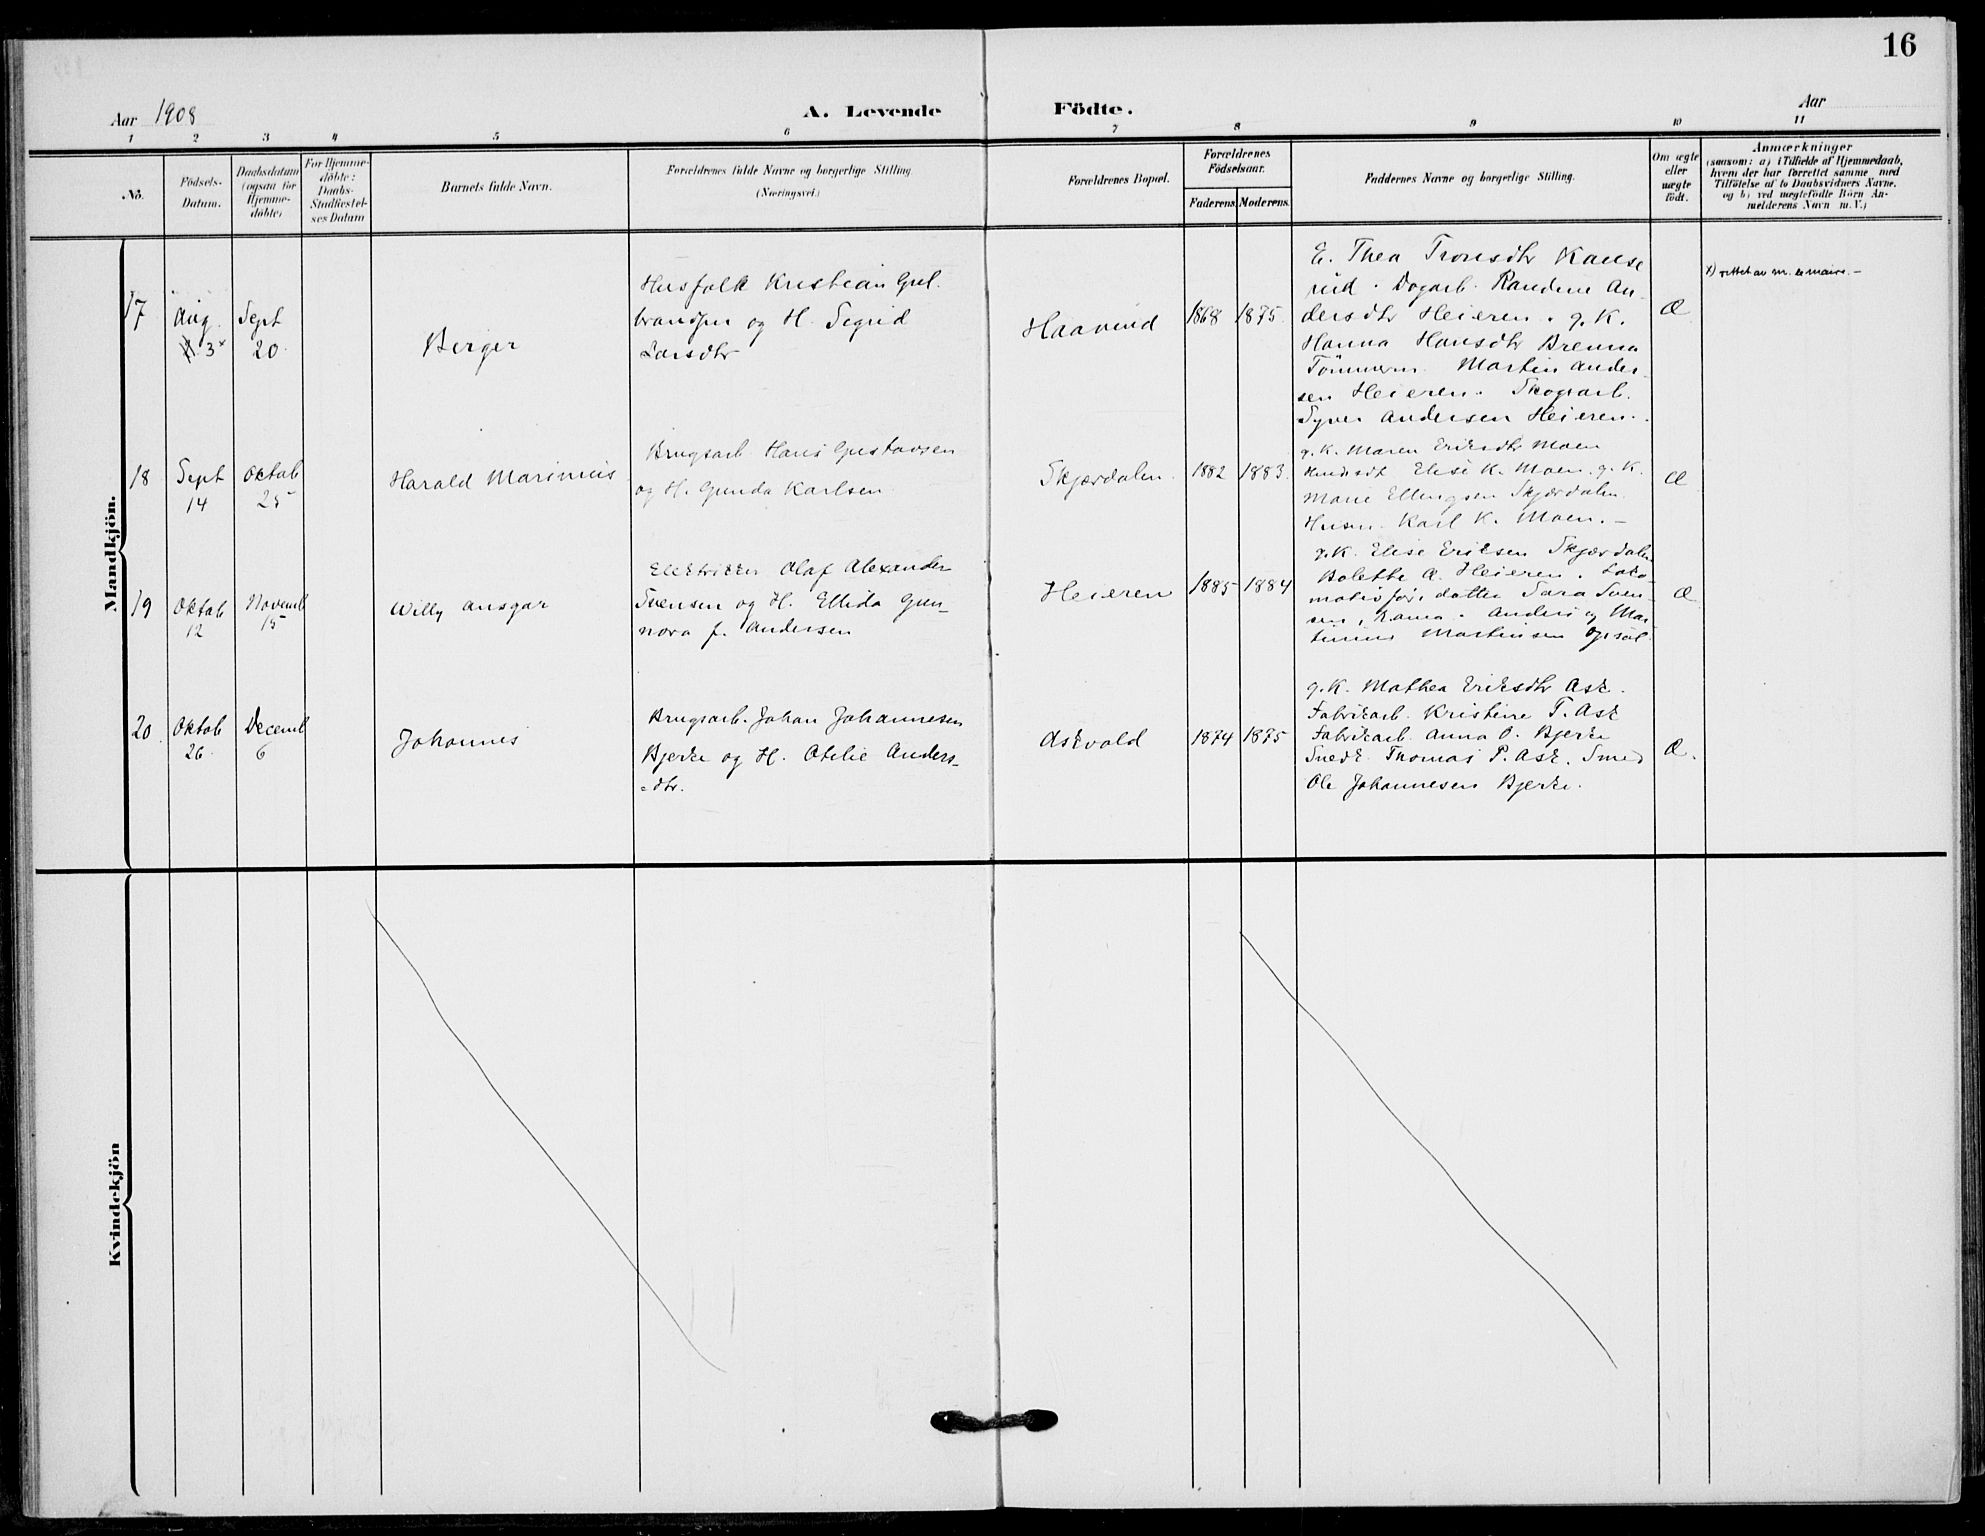 16
Aar 1908
A. Levende Födte.
Aar
1 2 3 4 5 6 7 8 9 10 11
No.
Födsels-
Datum.
Daabsdatum
(ogsaa for
Hjemme-
döbte)
For Hjemme-
döbte:
Daabs-
Stadfæstel-
ses Datum
Barnets fulde Navn.
Forældrenes fulde Navne og borgerlige Stilling
(Næringsvei.)
Forældrenes Bopæl.
Forældrenes
Födselsaar.
Faderens. Moderens.
Faddernes Navne og borgerlige Stilling.
Om ægte
eller
uægte
födt.
Anmærkninger
(saasom: a) i Tilfælde af Hjemmedaab,
hvem der har forrettet samme med
Tilföielse af to Daabsvidners Navne.
og b) ved uægtefödte Börn An-
melderens Navn m. V.)
Mandkjön.
17
Aug.
3 x
Sept
20.
Berger
Husfolk Kristian Gul-
brandsen og H. Sigrid
Larsdtr
Haavind
1868 1875.
E. Thea Tronsdtr Kanse
rud. Dagarb. Randine An-
dersdtr Heieren. g. K.
Hanna Hansdtr Brenna
Tömmerm. Martin Ander-
sen Heieren. Skogsarb.
Syver Andersen Heieren.
Æ
x) rettet av m.
18
Sept
14
Oktob
25
Harald Marinius
Brugsarb Hans Gustavsen
og H. Gunda Karlsen
Skjærdalen.
1882 1883.
g. K. Maren Eriksdtr Moen
Elise K. Moen. g. K.
Marie Ellingsen Skjærdalen.
Husm. Karl K. Moen. –
Æ
19
Oktob
12
Novemb
15
Willy Ansgar
Elektriker Olaf Alexander
Svensen og H. Ellida Gun-
nora f. Andersen
Heieren
1885 1884
g. K. Elise Eriksen Skjærdalen
Bolette A. Heieren. Loko-
motivförs datter Sara Sven-
sen, Anders og Mar-
tinius Martinsen Opsal.
Æ
20.
Oktob
26
Decemb
6
Johannes
Brugsarb. Johan Johannesen
Bjerke og H. Otelie Anders-
-dtr.
Askvald
1874 1875
g. K. Mathea Eriksdtr Ask.
Fabrikarb. Kristine T. Ask
Fabrikarb. Anna O. Bjerke
Snedk. Thomas P. Ask. Smed
Ole Johannesen Bjerke.
Æ.
Kvindekjön